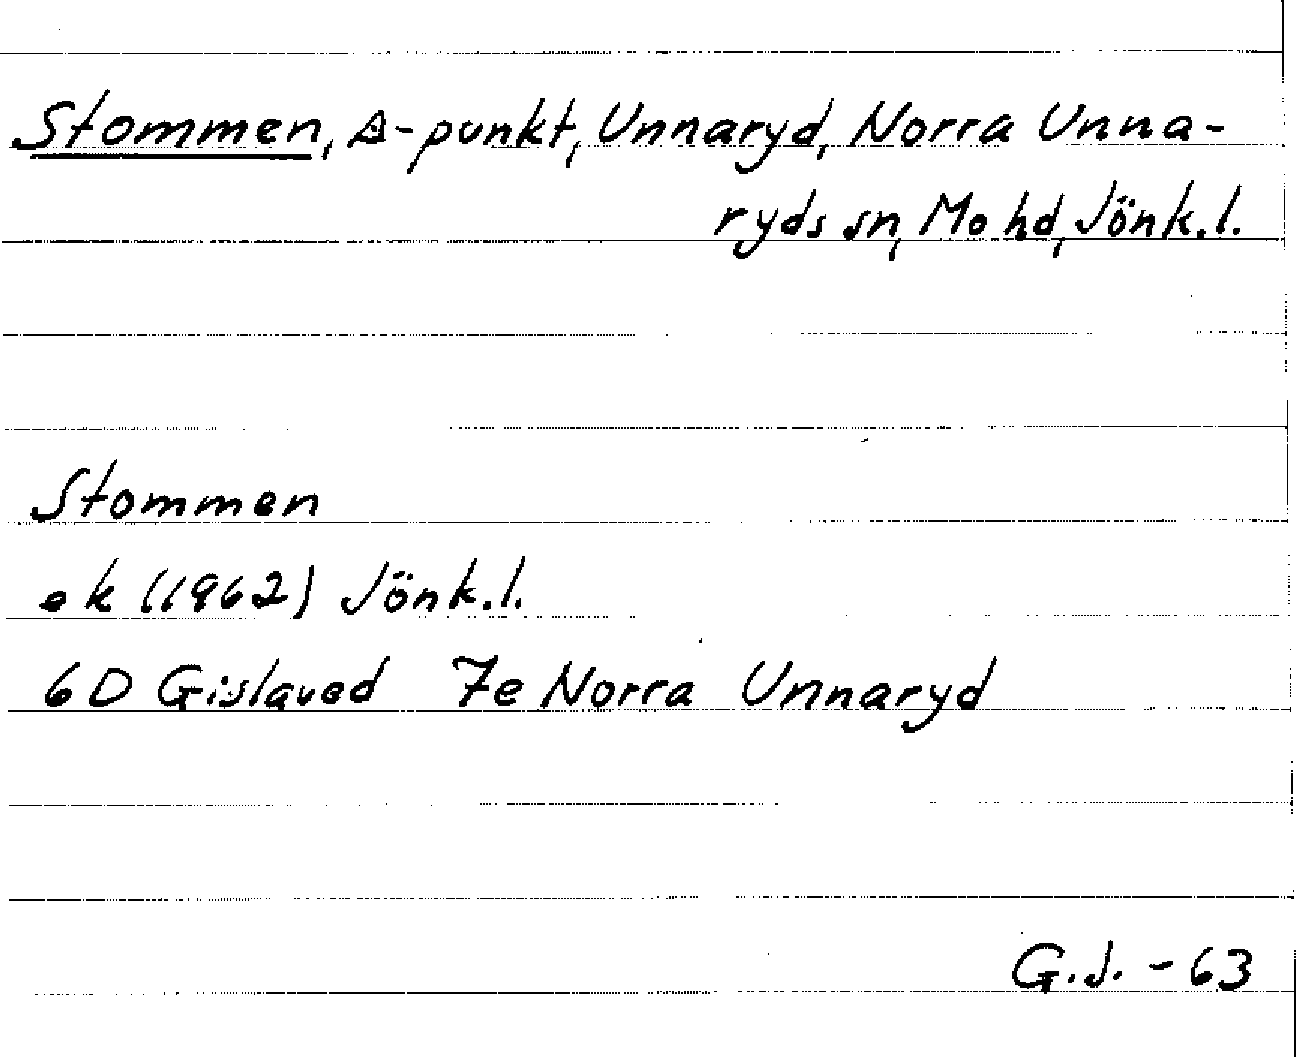 Stommen, Δ-punkt, Unnaryd, Norra Unna-
ryds sn, Mo hd, Jönk.l.
Stommen
ek (1962) Jönk.l.
6D Gislaved 7e Norra Unnaryd
G.J. - 63